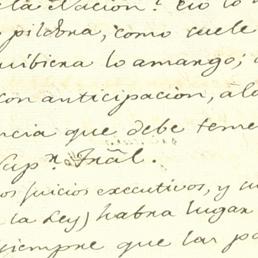 la Nacion.
pildora, como suele
ubiera lo amargo;
con anticipacion, a lo
ncia que debe teme
Sup.n Trãl.
os juicios executivos, y
la Ley) habra lugar
siempre que las pa